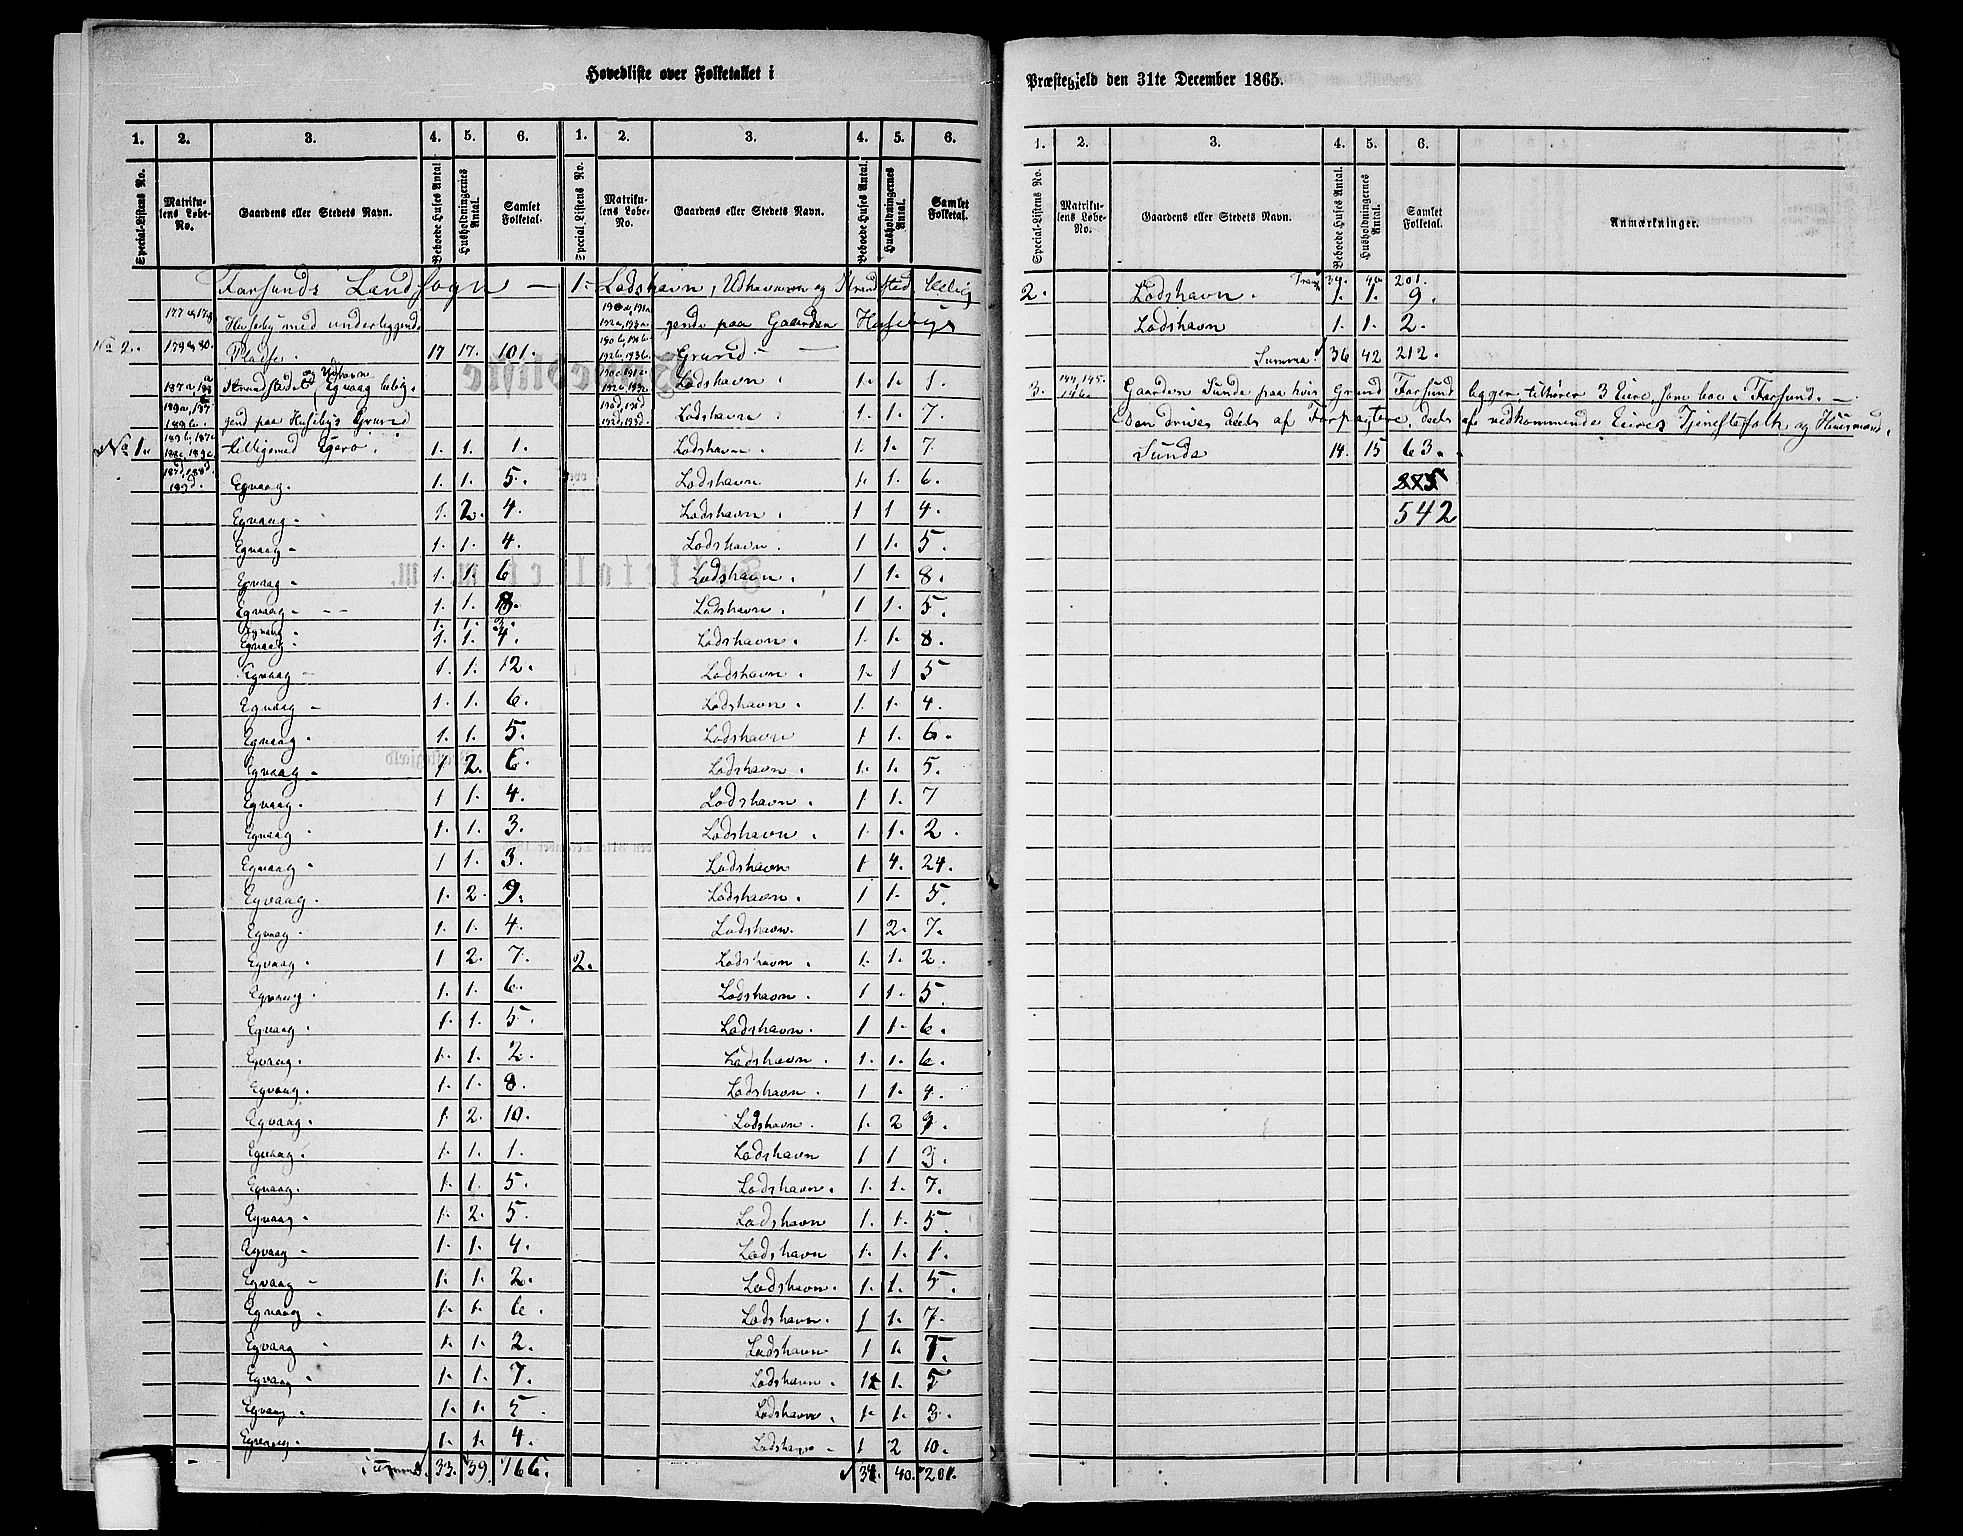 Hovedliste over Folketallet i
Præstegjeld den 31te December 1865.
1. 2. 3. 4. 5. 6. 1. 2. 3. 4. 5. 6.
Special-Listens No. Matrikulens Løbe-No. Gaardens eller Stedets Navn. Beboede Huses Antal Husholdningernes Antal. Samlet Folketal. Special-Listens No. Matrikulens Løbe-No. Gaardens eller Stedets Navn. Beboede Huses Antal. Husholdningernes Antal. Samlet Folketal.
Farsunds Landsogn —
Huseby med underliggende
No 2. 179 og 80. Pladse. 17 17. 101.
Strandstedet og Udhavn Egvaag belig-
gend paa Husebys Grund
No 1. tilligemed Egerö. 1. 1. 1.
Egvaag. 1. 1. 5.
Egvaag. 1. 2. 4.
Egvaag 1. 1. 4.
Egvaag 1. 1. 6
Egvaag 1. 1. 8.
Egvaag 1. 1. 3.
Egvaag 1. 1. 4.
Egvaag 1. 1. 12.
Egvaag 1. 1. 6.
Egvaag. 1. 1. 5.
Egvaag 1 2. 6.
Egvaag. 1 1. 4.
Egvaag 1. 1. 3.
Egvaag 1 1. 3.
Egvaag. 1. 2. 9.
Egvaag 1. 1. 4.
Egvaag. 1 2. 7.
Egvaag. 1. 1. 6.
Egvaag. 1. 1. 5.
Egvaag. 1. 1. 2.
Egvaag. 1. 1. 8.
Egvaag. 1. 2. 10.
Egvaag. 1. 1. 1.
Egvaag. 1. 1. 5.
Egvaag. 1. 2. 5.
Egvaag 1. 1. 4.
Egvaag 1. 1. 2.
Egvaag. 1. 1. 6.
Egvaag 1. 1. 2.
Egvaag. 1. 1. 7.
Egvaag. 1. 1. 5.
Egvaag. 1. 1. 4.
Summa. 33. 39. 166.
1. Lodshavn, Udhavnen og Strandsted belig
gende paa Gaarden Husebys
Grund
Lodshavn. 1. 1. 1.
Lodshavn. 1. 1. 7.
Lodshavn. 1. 1. 7
Lodshavn 1. 1. 6.
Lodshavn. 1 1 4.
Lodshavn. 1 1. 5.
Lodshavn. 1 1. 8.
Lodshavn. 1 1. 5.
Lodshavn. 1. 1. 8.
Lodshavn. 1. 1 5
Lodshavn. 1. 1. 4.
Lodshavn 1 1. 6.
Lodshavn. 1. 1. 5.
Lodshavn. 1 1. 7
Lodshavn. 1. 1. 2.
Lodshavn 1 4. 24.
Lodshavn. 1 1. 5.
Lodshavn. 1 2. 7.
2. Lodshavn. 1. 1. 2.
Lodshavn. 1 1. 5.
Lodshavn. 1 1. 6.
Lodshavn. 1. 1. 6.
Lodshavn. 1. 1. 4.
Lodshavn. 1. 2 9.
Lodshavn 1 1 3.
Lodshavn. 1. 1. 7.
Lodshavn 1. 1. 5.
Lodshavn 1. 1. 1.
Lodshavn. 1. 1. 5.
Lodshavn. 1 1. 7.
Lodshavn 1 1. 7.
Lodshavn. 1 1. 5
Lodshavn. 1. 1. 3.
Lodshavn 1 2 10.
34. 40. 201.
1. 2. 3. 4. 5. 6.
Special-Listens No. Matrikulens Løbe-No. Gaardens eller Stedets Navn. Beboede Huses Antal. Husholdningernes Antal. Samlet Folketal. Anmærkninger.
34. 40 201.
2. Lodshavn. 1. 1. 9.
Lodshavn 1. 1. 2.
Summa. 36 42 212.
3. 144, 145. 146. Gaarden Sunde paa hvis Grund Farsund ligger, tilhører 3 Eiere, som boe i Farsund.
Den drives deels af Forpagtere, deels af vedkommende Eieres Tjenestefolk og Huusmænd.
Sunde 14. 15 63.
542